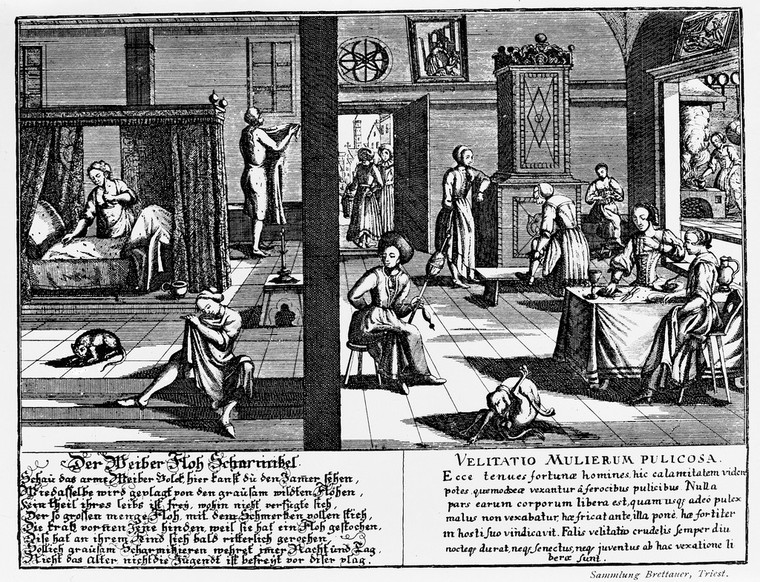 Der Weiber Floh Scharmützel.
Schau das arme Weiber Volck hier kanst du den Jamer sehen,
Wie dasselbe wird geplagt von den grausam wildten Flöhen,
Kein theil ihres leibs ist frey, wohin nicht verfügte sich,
Der so grossen menge Floh, mit dem Schmertzen vollen stich,
Die kratz vornen Jene hinden, weil sie hat ein Floh gestochen,
Dise hat an ihrem Feind sich bald ritterlich gerochen,
Sollich grausam Scharmiziren wehret imer Nacht und Tag,
Nicht das Alter, nicht die Jugendt ist befreyt vor diser plag.
VELITATIO MULIERUM PULICOSA.
Ecce tenues fortunæ homines, hic calamitatem viden
potes, quomodoeæ vexantur á ferocibus pulicibus. Nulla
pars earum corporum libera est, quam usq; adeò pulex
malus non vexabatur, hæ fricat ante, illa ponè. hæ fortiter
in hosti suo vindicavit. Falis velitatio crudelis semper diu
nocteq; durat, neq; senectus, neq; juventus ab hac vexatione li
beræ sunt.
Sammlung Brettauer, Triest.